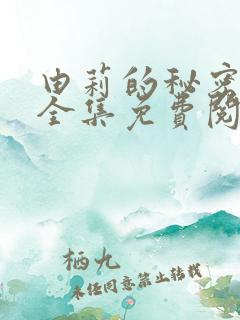 由莉的秘密
全集免费阅
栖九
未经同意禁止转载